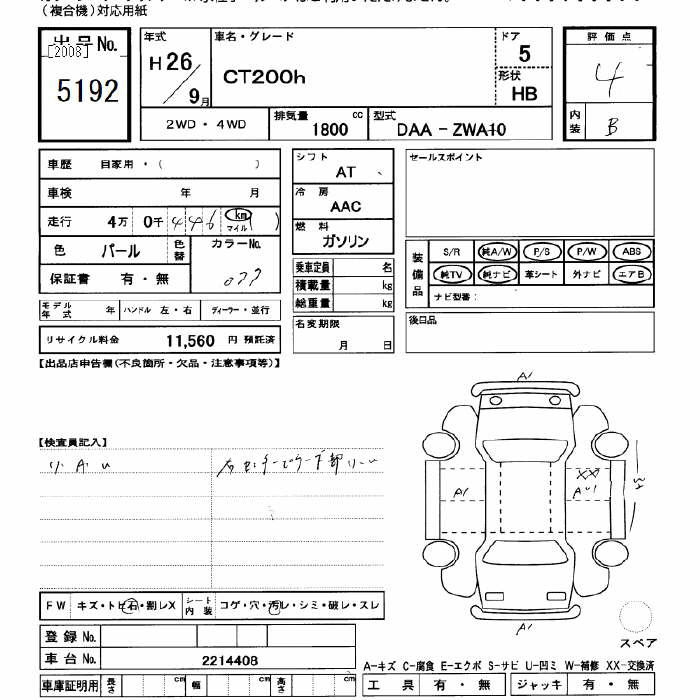 （複合機）対応用紙
出品No.
[2008]
5192
年式
H26/9月
車名・グレード
CT200h
ドア
5
形状
HB
2WD・4WD
排気量
1800 cc
型式
DAA - ZWA10
評価点
4
内装
B
車歴 自家用・（ ）
車検 年 月
走行 4万 0千 446 (km マイル)
色 パール
色替
カラーNo.
077
保証書 有・無
モデル年式 年
ハンドル 左・右
ディーラー・並行
リサイクル料金 11,560 円 預託済
シフト
AT
冷房
AAC
燃料
ガソリン
乗車定員 名
積載量 kg
総重量 kg
名変期限
月 日
セールスポイント
装備品
S/R 純A/W P/S P/W ABS
純TV 純ナビ 革シート 外ナビ エアB
ナビ型番：
後日品
【出品店申告欄（不良箇所・欠品・注意事項等）】
【検査員記入】
小 A U
A1
A1
XX
AU1
A1
FW キズ・トビ石・割レX
シート内装 コゲ・穴・汚レ・シミ・破レ・スレ
登録No.
車台No. 2214408
車庫証明用 長さ cm 幅 cm 高さ cm
スペア
A-キズ C-腐食 E-エクボ S-サビ U-凹ミ W-補修 XX-交換済
工具 有・無
ジャッキ 有・無